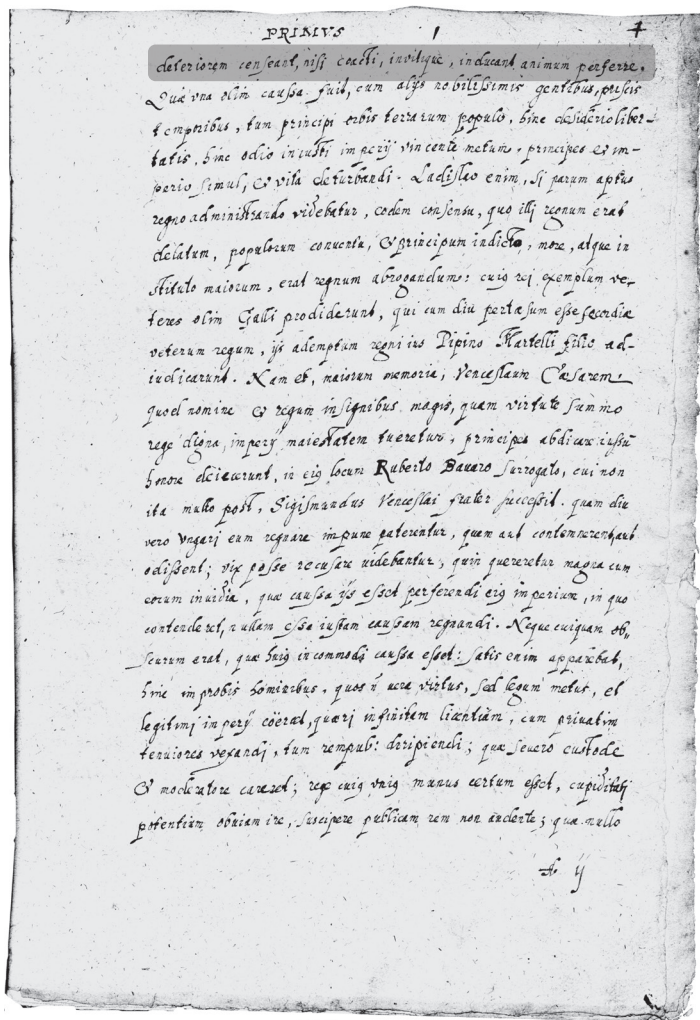 PRIMVS 1 4
deteriorem censeant, nisi coacti, invitique, inducant animum perferre.
Quæ vna olim caussa fuit, cum alijs nobilissimis gentibus, priscis
temporibus, tum principi orbis terrarum populo, hinc desiderio liber-
tatis, hinc odio iniusti imperij vincente metum, principes & im-
perio simul, & vita deturbandi. Ladislao enim, si parum aptus
regno administrando videbatur, eodem consensu, quo illi regnum erat
delatum, populorum conuentu, & principum indicto, more, atque in
stituto maiorum, erat regnum abrogandum: cuig rej exemplum ve-
teres olim Galli prodiderunt, qui cum diu pertæsum esset secordiæ
veterum regum, ijs ademptum regni ius Pipino Martelli filio ad-
iudicarunt. Nam et, maiorum memoria, Venceslaum Cæsarem
quod nomine & regum insignibus magis, quam virtute summo
rege digna, imperij maiestatem tueretur, principes abdicare iussū
honore deiecerunt, in eig locum Ruberto Bauaro surrogato, cui non
ita multo post, Sigismundus Venceslai frater successit. quam diu
vero vngarj eum regnare impune paterentur, quem aut contemnerent, aut
odissent; vix posse recusare uidebantur, quin quereretur magna cum
eorum inuidia, quæ caussa ijs esset perferendi eig imperium, in quo
contenderet, nullam esse iustam caussam regnandi. Neque cuiquam ob„
scurum erat, quæ huig incommodi caussa esset: satis enim apparebat,
hinc improbis hominibus, quos n̄ uera virtus, sed legum metus, et
legitimj imperij coërcet, quærj infinitam licentiam, cum priuatim
tenuiores vexandj, tum rempub: diripiendi; quæ seuero custode
& moderatore careret; rege cuig vnig munus certum esset, cupiditatj
potentium obuiam ire, suscipere publicam rem non audente; quæ nullo
A ij